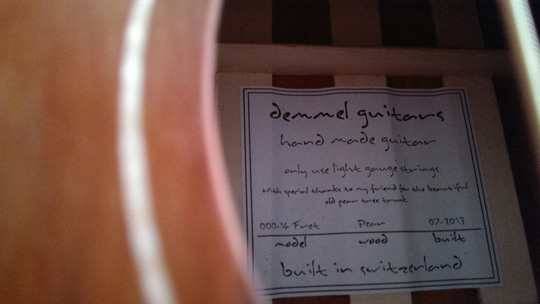 demmel guitars
hand made guitar
only use light gauge strings
with special thanks to my friend for the beautiful
old pear tree trunk
000-14 Fret Pear 07-2013
model wood built
built in switzerland